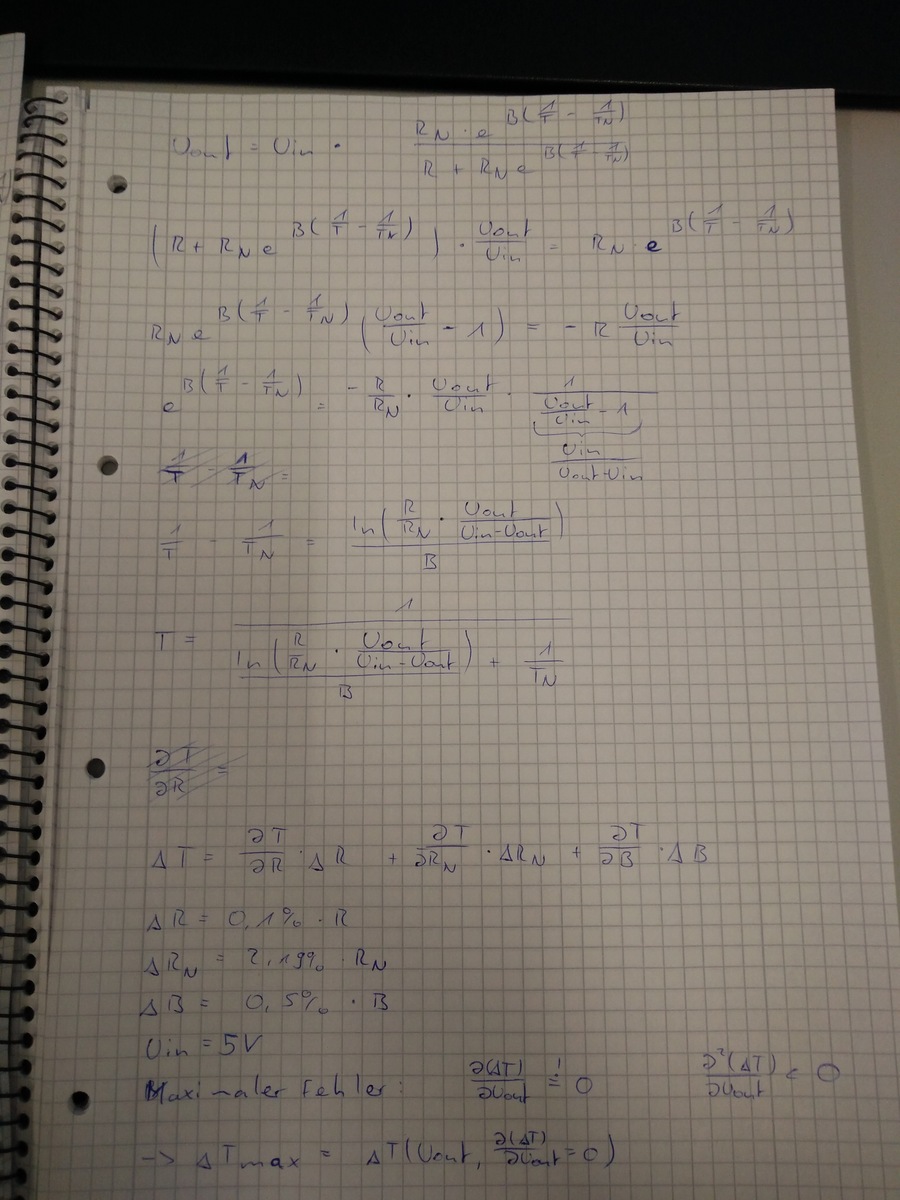 Uout = Uin · (R_N · e^(B(1/T - 1/T_N))) / (R + R_N e^(B(1/T - 1/T_N)))
(R + R_N e^(B(1/T - 1/T_N))) · Uout/Uin = R_N · e^(B(1/T - 1/T_N))
R_N e^(B(1/T - 1/T_N)) (Uout/Uin - 1) = - R Uout/Uin
e^(B(1/T - 1/T_N)) = - R/R_N · Uout/Uin · 1/(Uout/Uin - 1)
Uin/(Uout-Uin)
1/T - 1/T_N =
1/T - 1/T_N = ln(R/R_N · Uout/(Uin-Uout)) / B
T = 1 / (ln(R/R_N · Uout/(Uin-Uout)) / B + 1/T_N)
∂T/∂R =
ΔT = ∂T/∂R · ΔR + ∂T/∂R_N · ΔR_N + ∂T/∂B · ΔB
ΔR = 0,1% · R
ΔR_N = 2,19% · R_N
ΔB = 0,5% · B
Uin = 5V
Maximaler Fehler: ∂(ΔT)/∂Uout =! 0 ∂²(ΔT)/∂Uout < 0
-> ΔTmax = ΔT(Uout, ∂(ΔT)/∂Uout = 0)